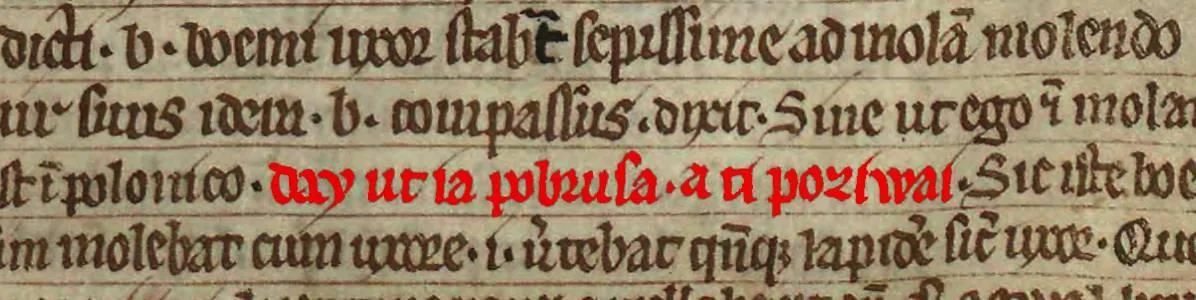 dicti. b. boemi uxor stabat sepissime ad molā molendo
vir suus idem. b. compassus. dixit. Sine ut ego ī mola
st ī polonico. day ut ia pobrusa. a ti poziwai. Sic iste boe
molebat cum uxore. i. v̄tebat qn̄q; lapidē sic̄ uxor. Qu